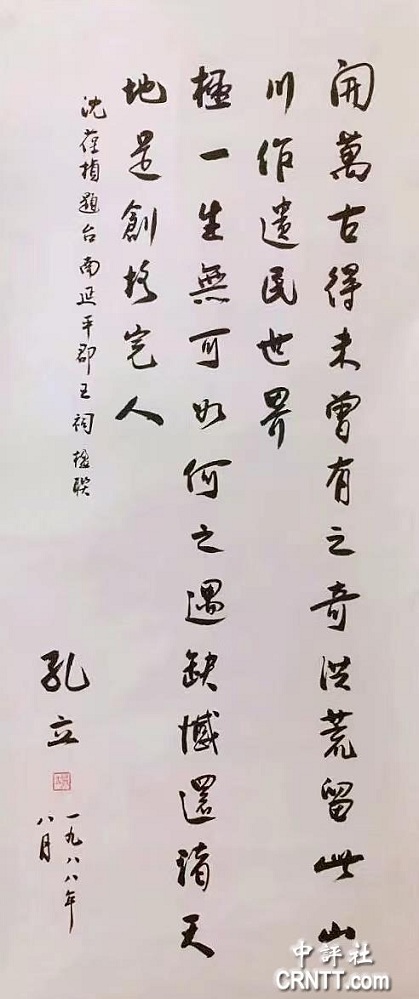 開萬古得未曾有之奇洪荒留此山
川作遺民世界
極一生無可如何之遇缺憾還諸天
地是創格完人
沈葆楨題台南延平郡王祠楹联
孔立
一九八八年
八月
中評社
CRNTT.com